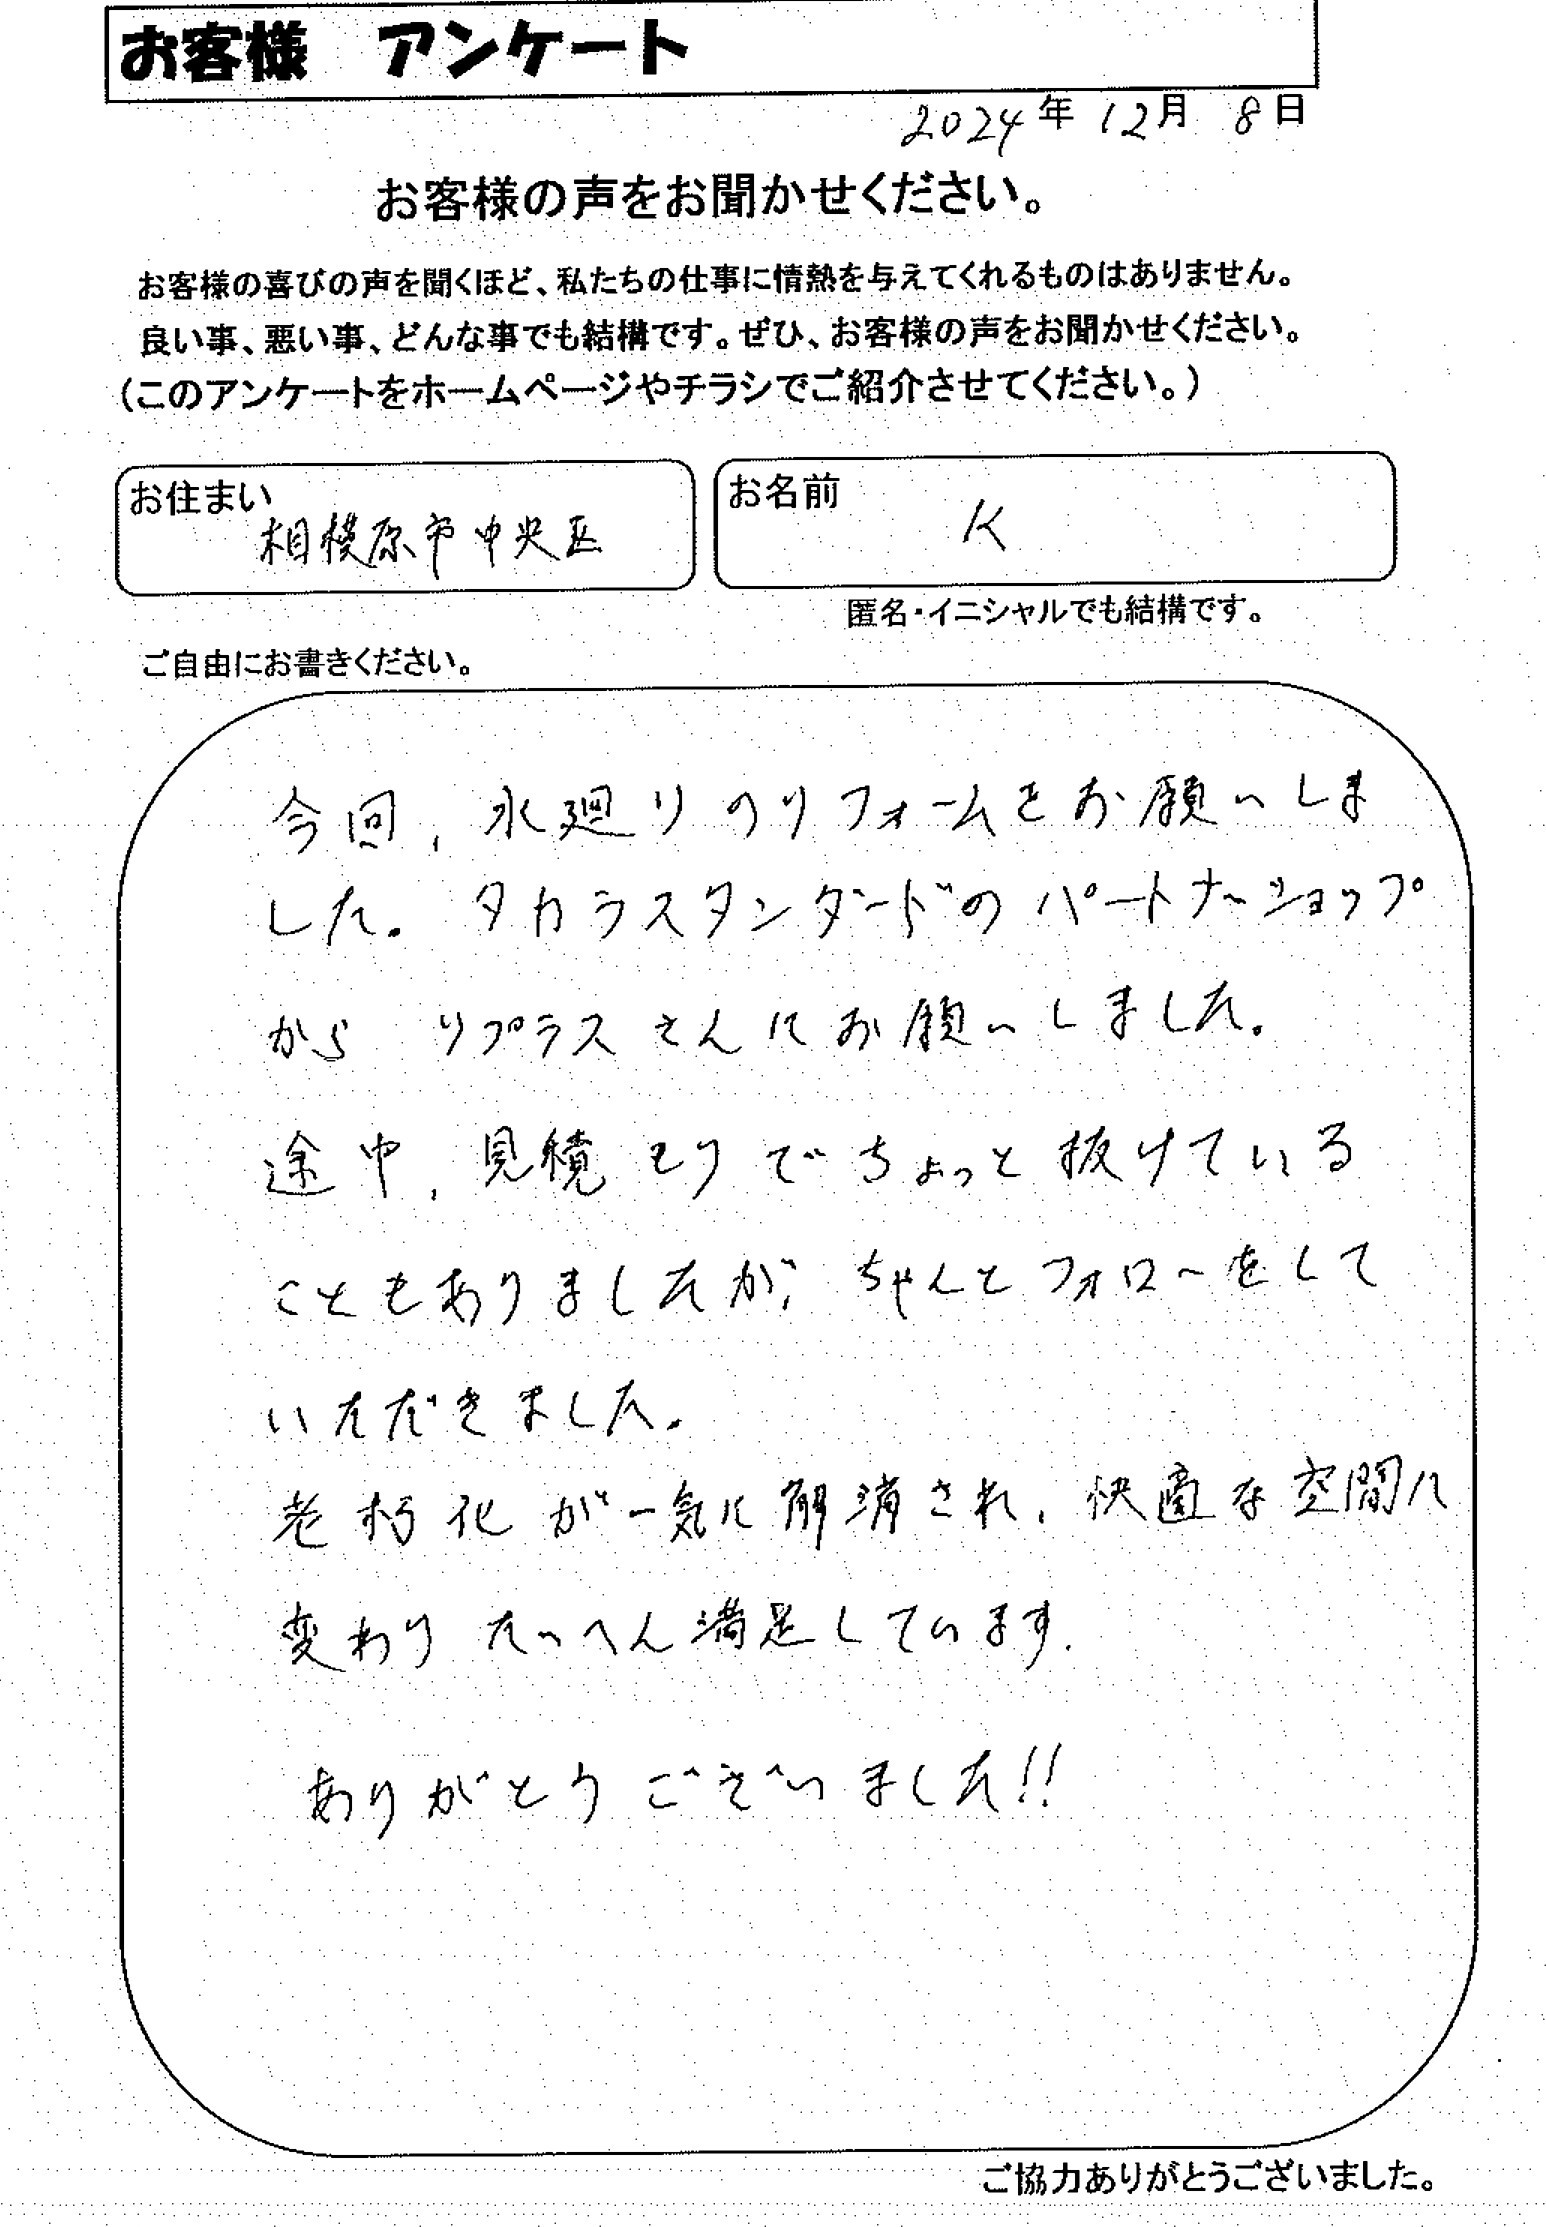 お客様 アンケート
2024年 12月 8日
お客様の声をお聞かせください。
お客様の喜びの声を聞くほど、私たちの仕事に情熱を与えてくれるものはありません。
良い事、悪い事、どんな事でも結構です。ぜひ、お客様の声をお聞かせください。
(このアンケートをホームページやチラシでご紹介させてください。)
お住まい
相模原市中央区
お名前
K
匿名・イニシャルでも結構です。
ご自由にお書きください。
今回、水廻りのリフォームをお願いしま
した。タカラスタンダードのパートナーショップ
から リプラスさんにお願いしました。
途中、見積もりでちょっと抜けている
こともありましたが、ちゃんとフォローをして
いただきました。
老朽化が一気に解消され、快適な空間に
変わり たいへん満足しています。
ありがとうございました!!
ご協力ありがとうございました。